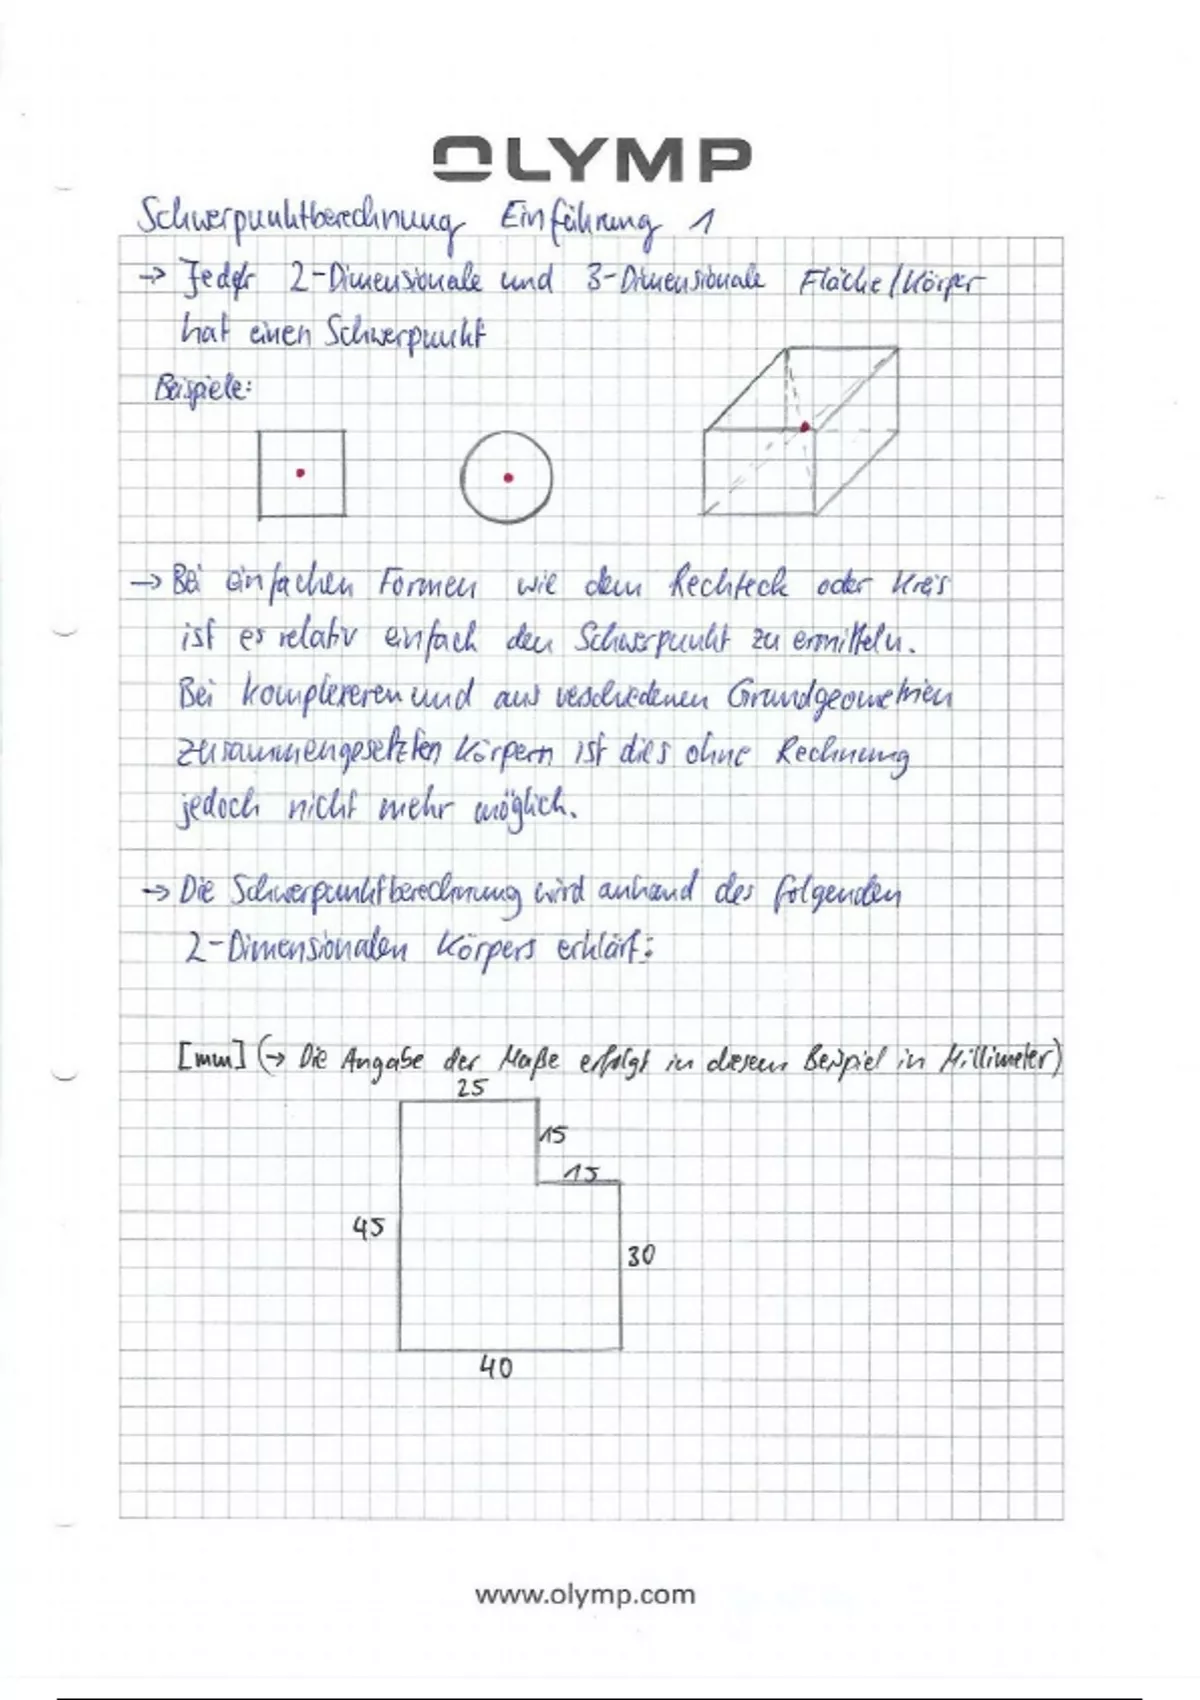 OLYMP
Schwerpunktberechnung Einführung 1
→ Jeder 2-Dimensionale und 3-Dimensionale Fläche/Körper
hat einen Schwerpunkt
Beispiele:
→ Bei einfachen Formen wie dem Rechteck oder Kreis
ist es relativ einfach den Schwerpunkt zu ermitteln.
Bei komplexeren und aus verschiedenen Grundgeometrien
zusammengesetzten Körpern ist dies ohne Rechnung
jedoch nicht mehr möglich.
→ Die Schwerpunktberechnung wird anhand des folgenden
2-Dimensionalen Körpers erklärt:
[mm] (→ Die Angabe der Maße erfolgt in diesem Beispiel in Millimeter)
25
15
15
45
30
40
www.olymp.com